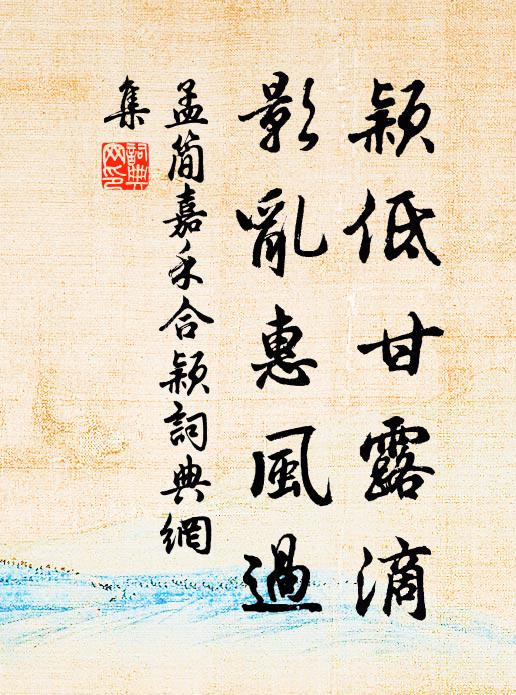 穎低甘露滴
影亂惠風過
孟簡嘉禾合穎詞典網
集
詞典網印